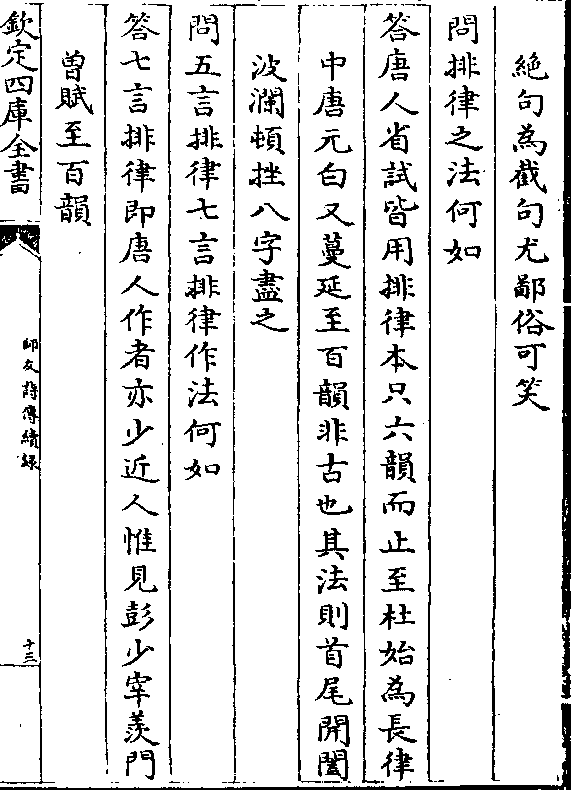 絶句為截句尤鄙俗可笑
問排律之法何如
答唐人省試皆用排律本只六韻而止至杜始為長律
中唐元白又蔓延至百韻非古也其法則首尾開闔
波瀾頓挫八字盡之
問五言排律七言排律作法何如
答七言排律即唐人作者亦少近人惟見彭少宰羨門
曽賦至百韻
欽定四庫全書
師友詩傳續録
十三